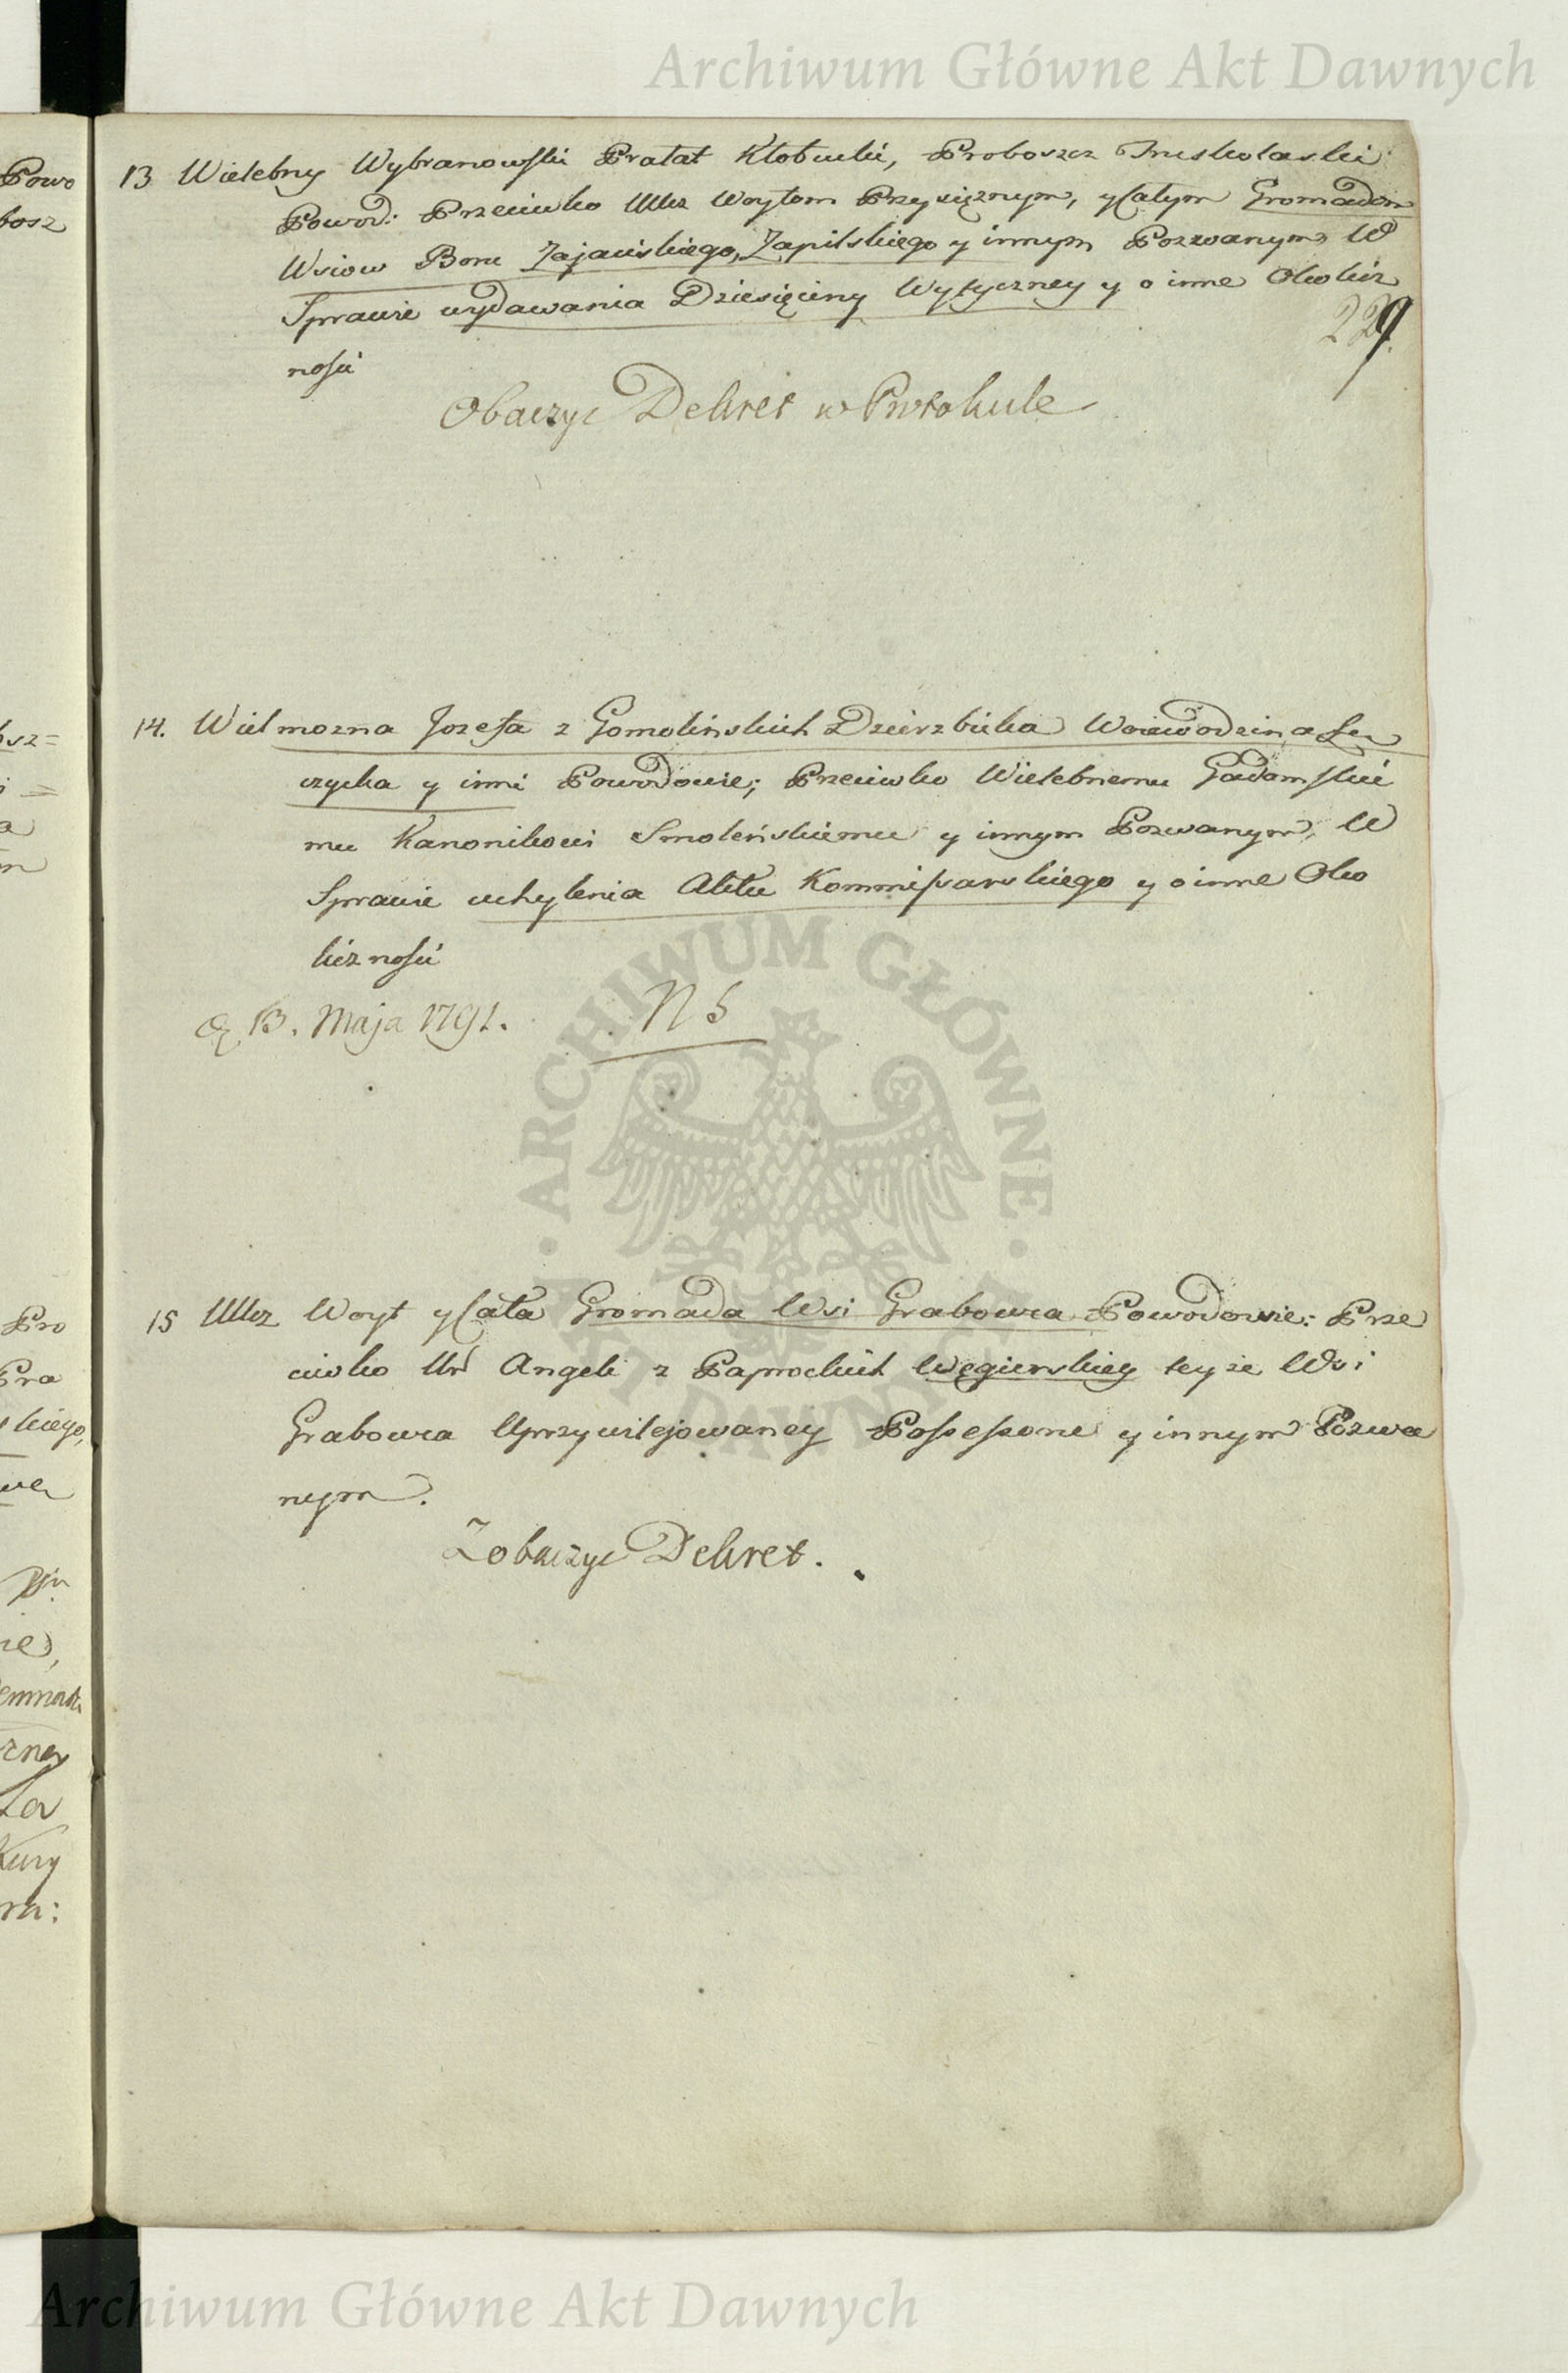 Archiwum Główne Akt Dawnych
13 Wielebny Wybranowski Prałat Kłobucki, Proboszcz Truskolaski
Powod: Przeciwko Ucz Woytom Przysięznym, y całym Gromadom
Wsiow Boru Zajacińskiego, Zapilskiego y innym Pozwanym W
Sprawie wydawania Dziesięciny Wytyczney y o inne Okolicz
229.
ności
Obaczyc Dekret w Protokule
14. Wielmozna Jozefa z Gomolińskich Dzierzbicka Woiewodzina Łę
czycka y inni Powodowie; Przeciwko Wielebnemu Gadomskie
mu Kanonikowi Smoleńskiemu y innym Pozwanym, W
Sprawie uchylenia Aktu Kommissarskiego y o inne Oko
liczności
13. Maja 1791. N 5
15 Ucz Woyt y cała Gromada Wsi Grabowca Powodowie: Prze
ciwko Ur Angeli z Paprockich Węgierskiey teyze Wsi
Grabowca Uprzywilejowaney Possessorce y innym Pozwa
nym.
Zobaczyc Dekret.
ARCHIWUM GŁÓWNE AKT DAWNYCH
Archiwum Główne Akt Dawnych